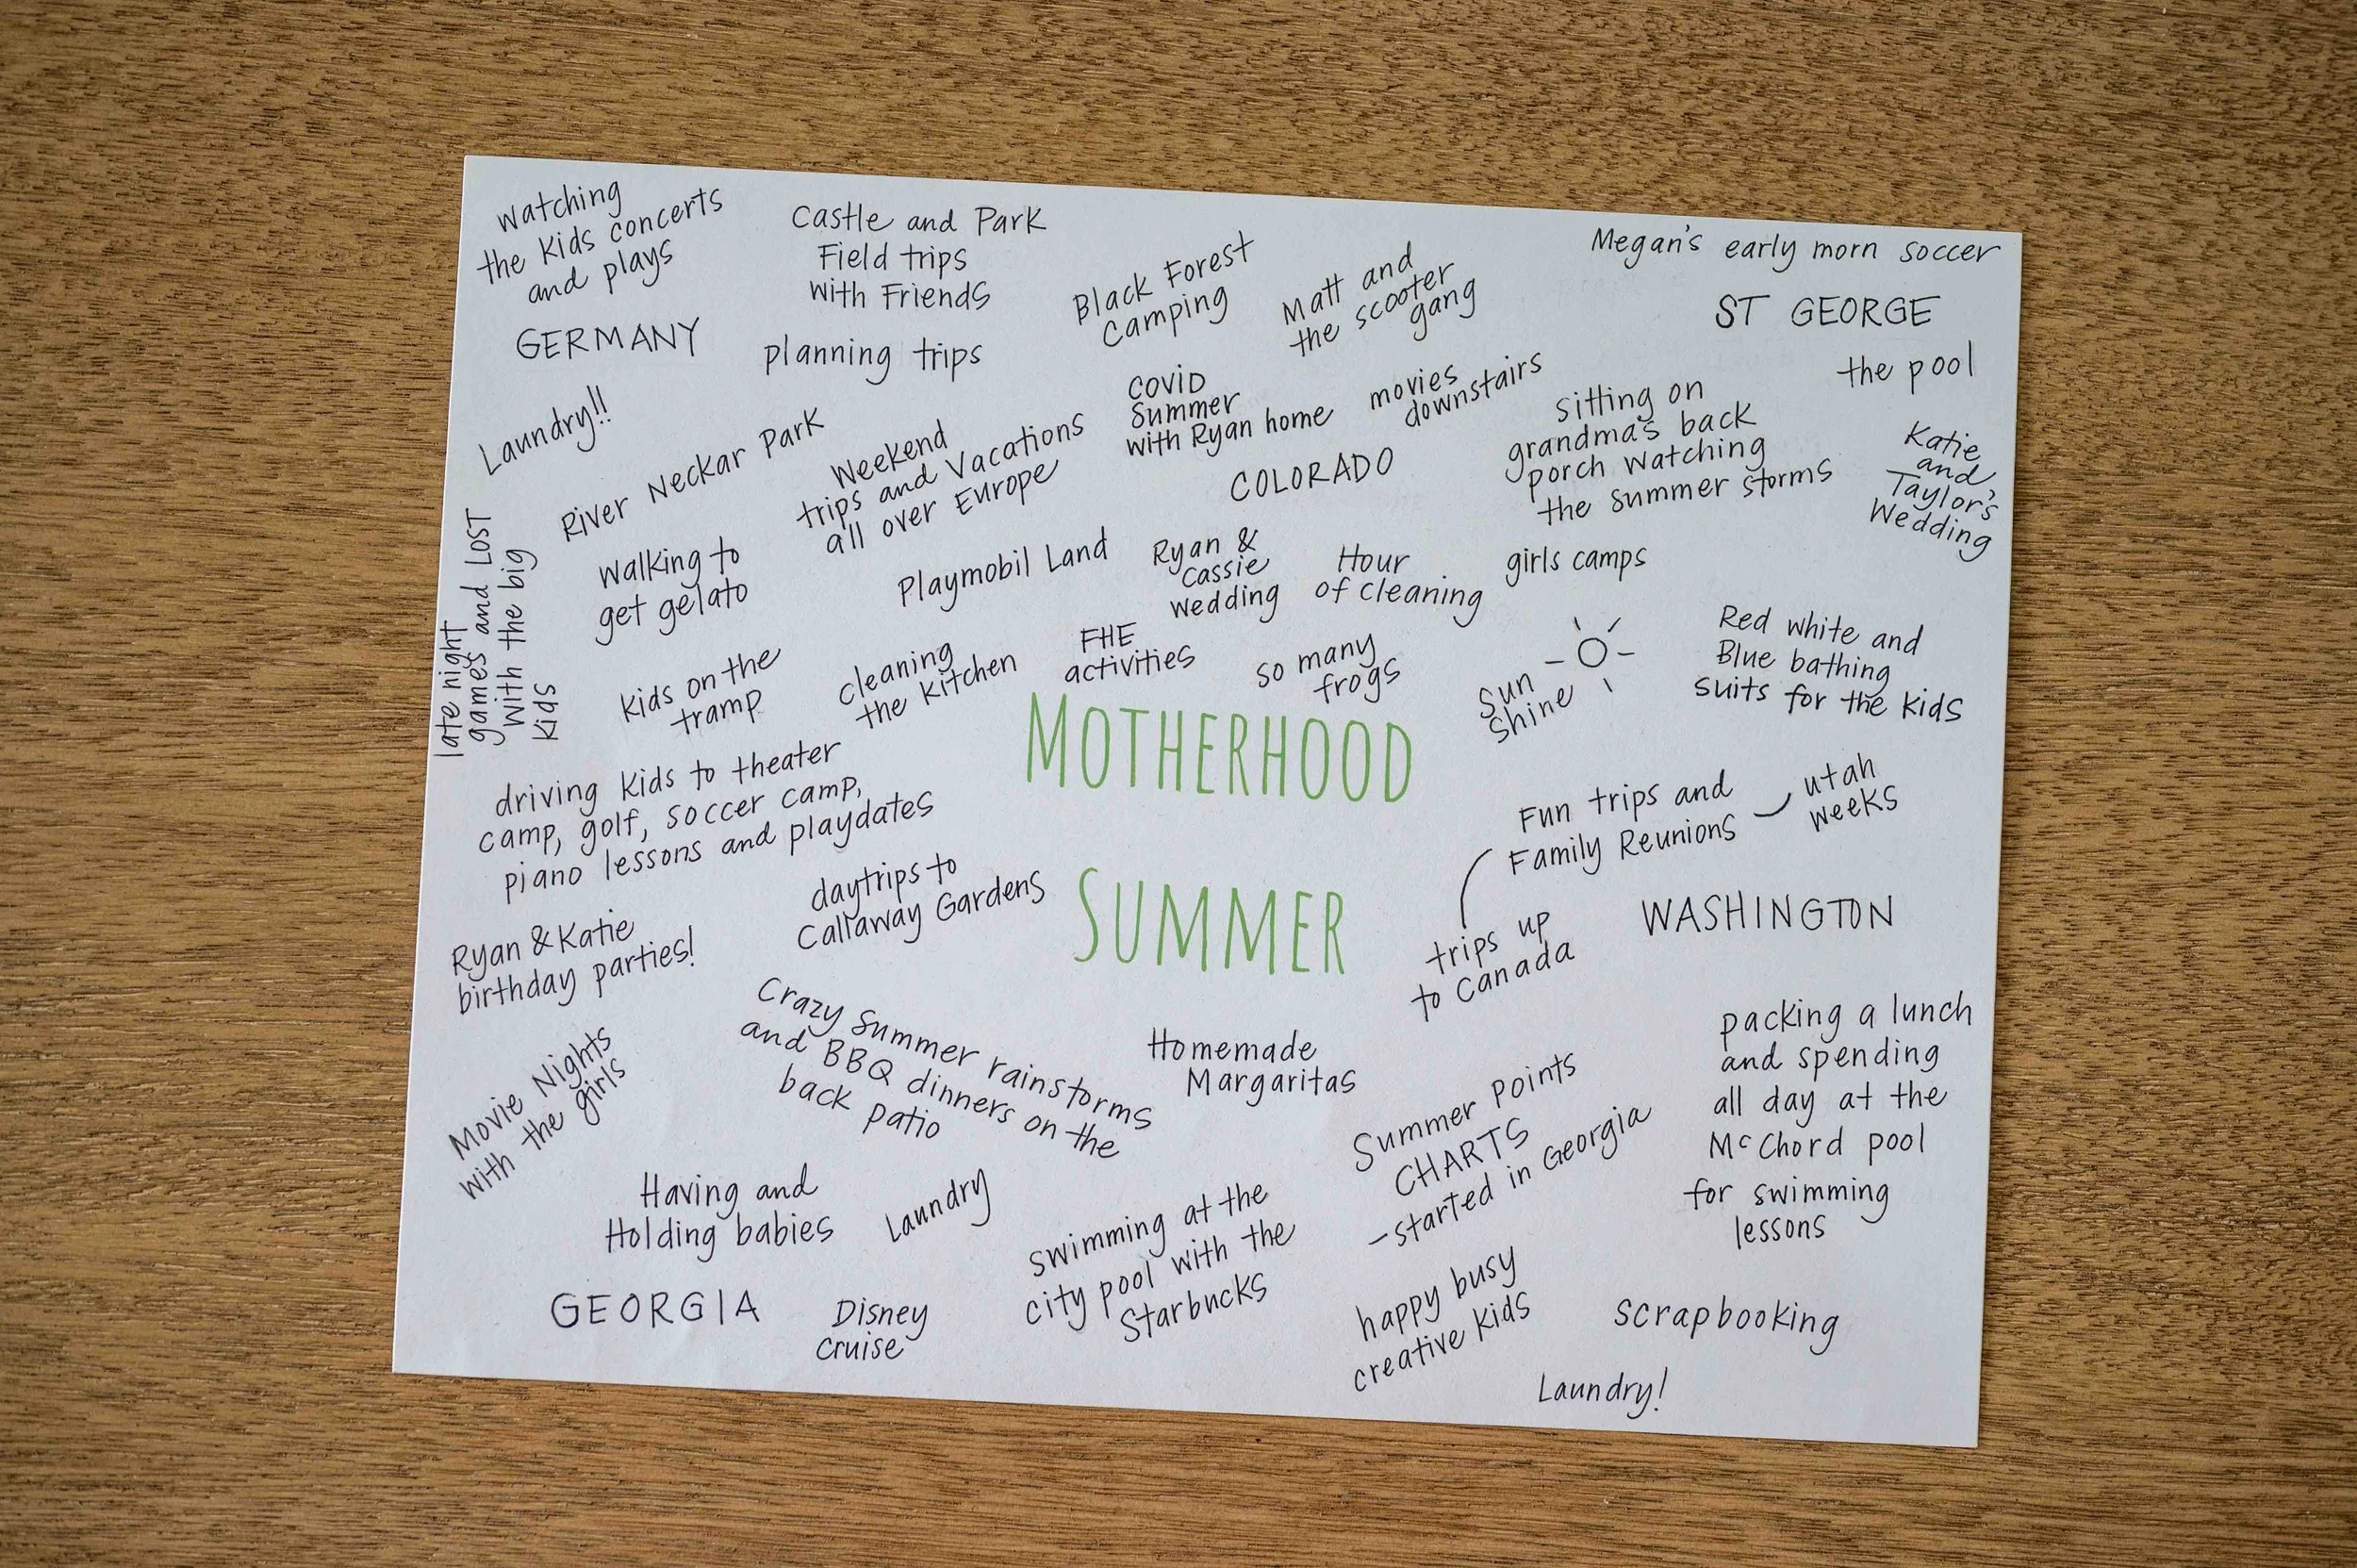 watching
the kids concerts
and plays
GERMANY
Castle and Park
Field trips
with Friends
planning trips
Black Forest
Camping
Matt and
the scooter
gang
Megan's early morn soccer
ST GEORGE
the pool
Laundry!!
River Neckar Park
Weekend
trips and Vacations
all over Europe
COVID
Summer
with Ryan home
movies
downstairs
COLORADO
sitting on
grandma's back
porch watching
the summer storms
Katie
and
Taylor's
Wedding
late night
games and LOST
with the big
kids
walking to
get gelato
Playmobil Land
Ryan &
Cassie
wedding
Hour
of cleaning
girls camps
kids on the
tramp
cleaning
the kitchen
FHE
activities
so many
frogs
Sun
shine
Red white and
Blue bathing
suits for the kids
MOTHERHOOD
SUMMER
driving kids to theater
camp, golf, soccer camp,
piano lessons and playdates
Fun trips and
Family Reunions
utah
weeks
daytrips to
Callaway Gardens
trips up
to Canada
WASHINGTON
Ryan & Katie
birthday parties!
Crazy Summer rainstorms
and BBQ dinners on the
back patio
Homemade
Margaritas
packing a lunch
and spending
all day at the
McChord pool
for swimming
lessons
Movie Nights
with the girls
Summer points
CHARTS
-started in Georgia
Having and
Holding babies
Laundry
swimming at the
city pool with the
Starbucks
happy busy
creative kids
GEORGIA
Disney
cruise
scrapbooking
Laundry!